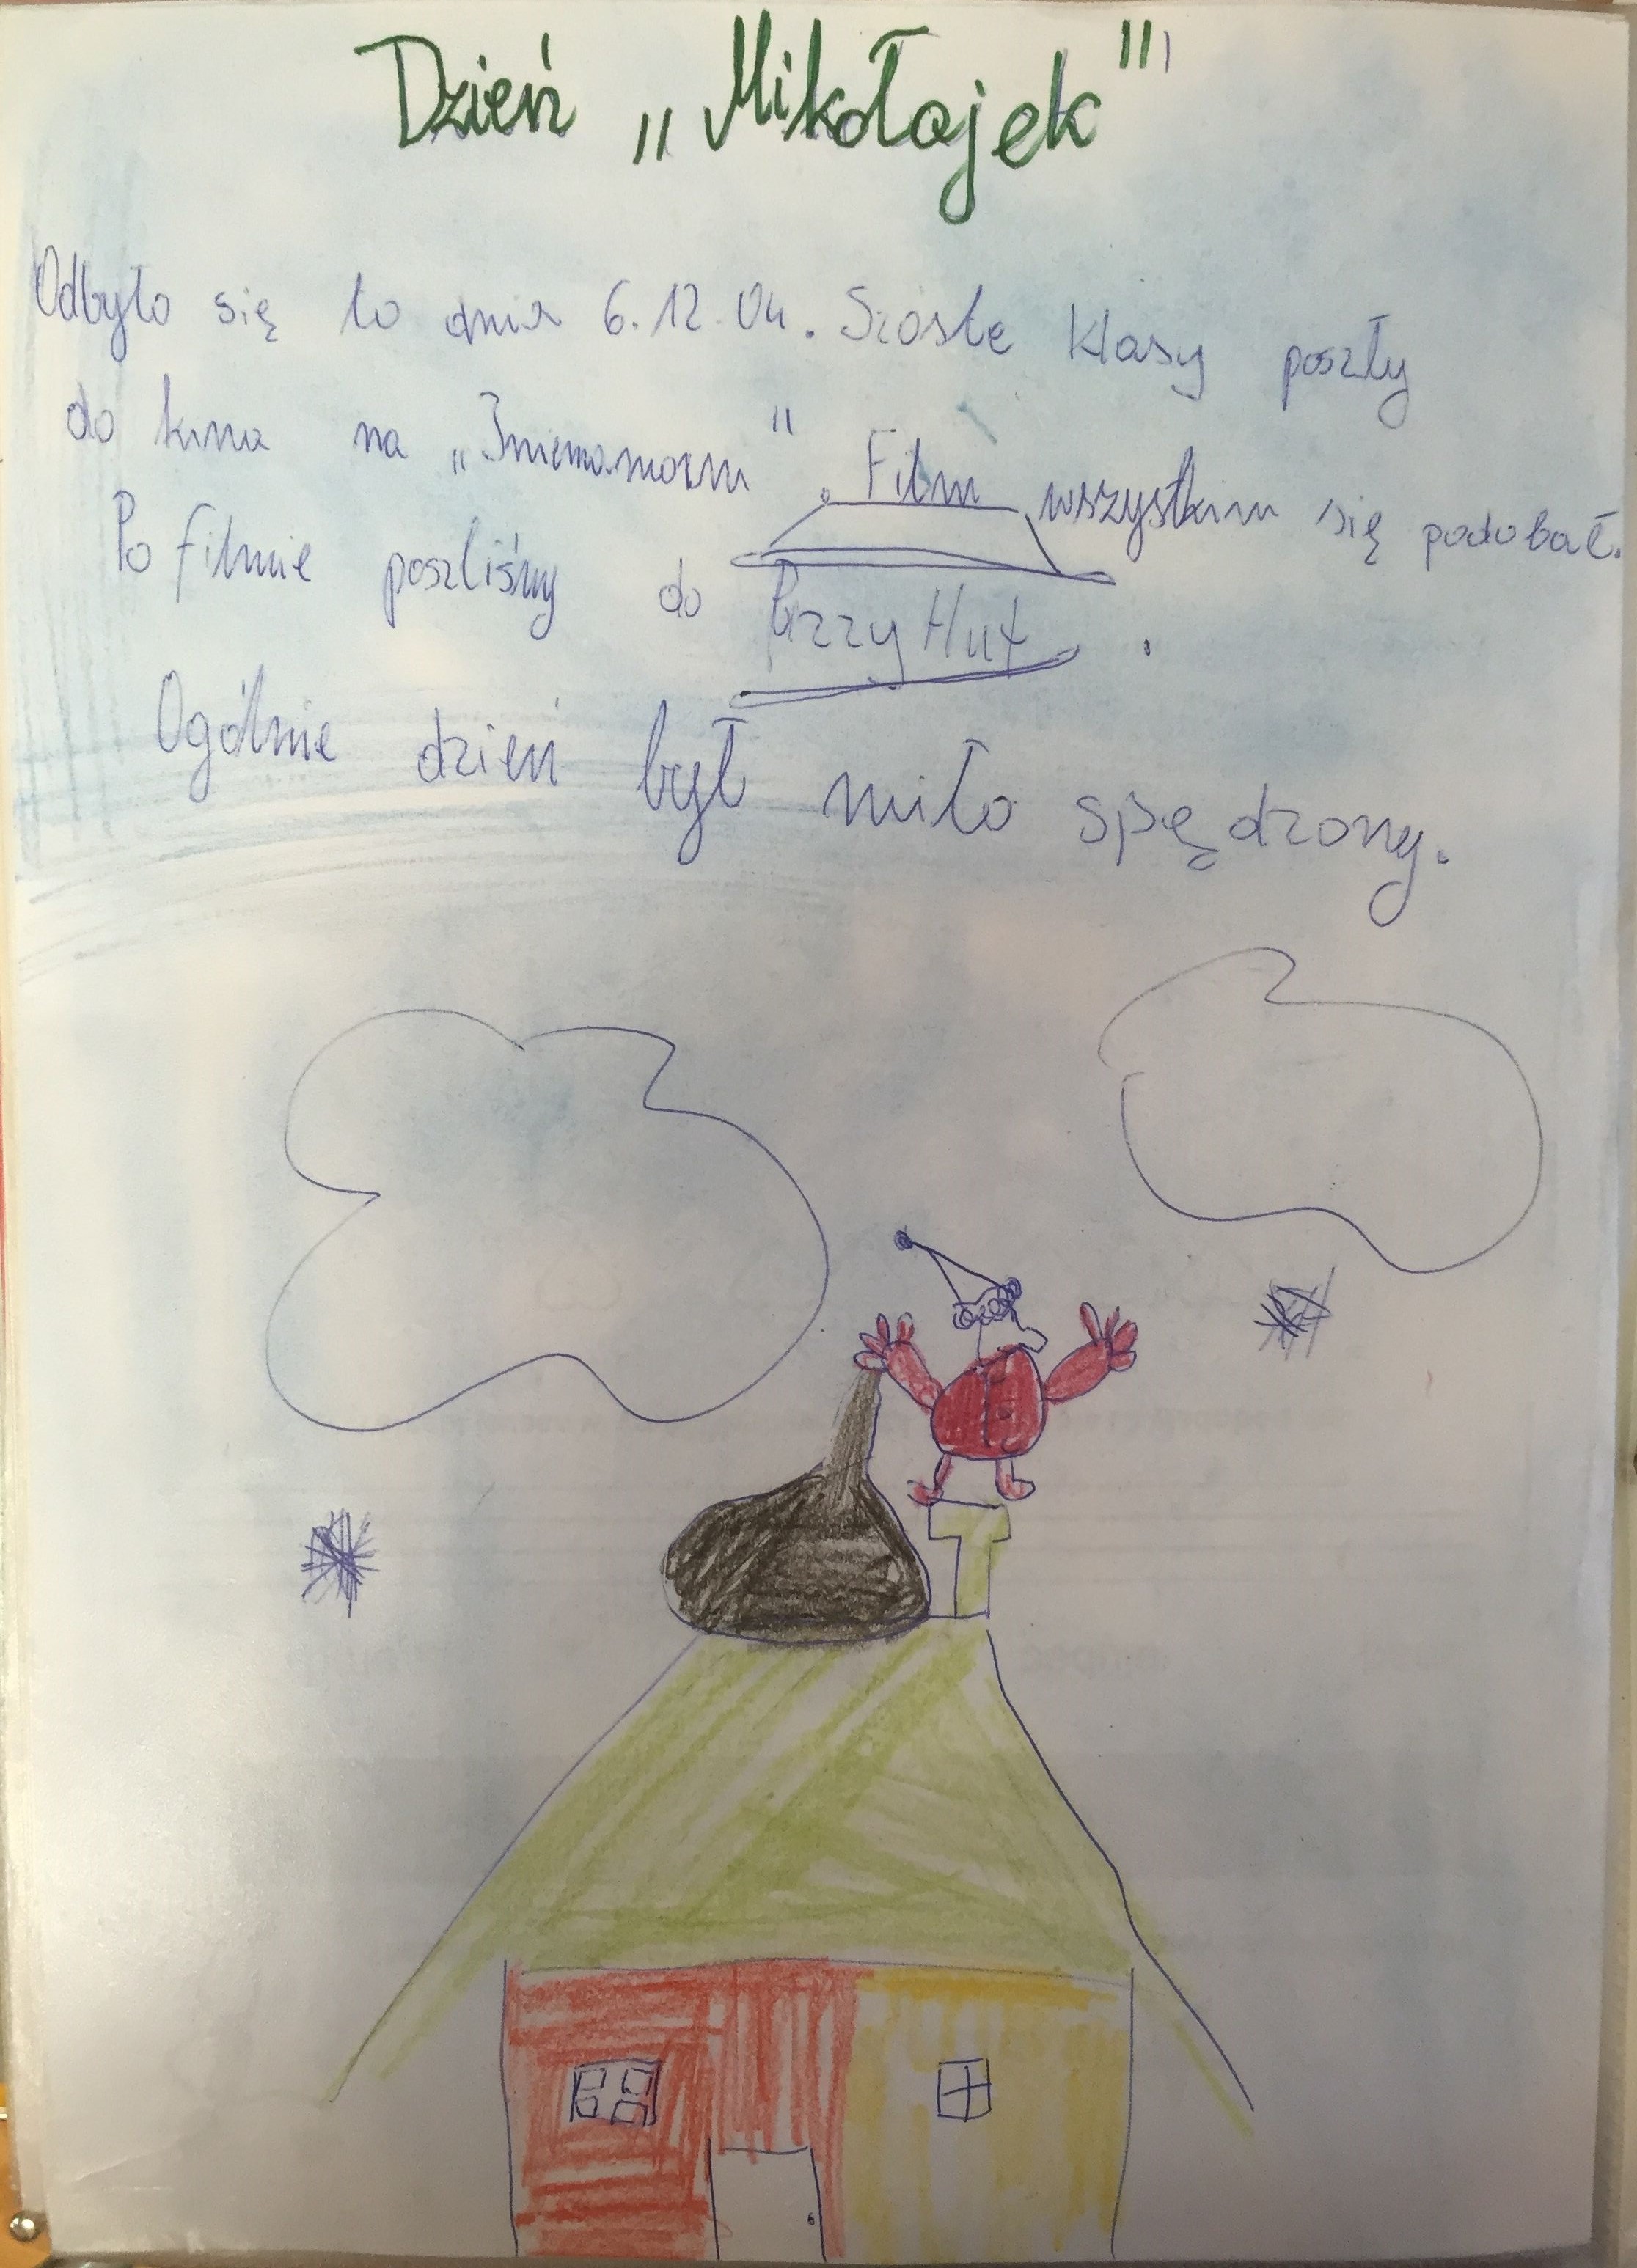 Dzień „Mikołajek"
Odbyło się to dnia 6.12.04. Szóste klasy poszły
do kina na „Iniemamocni". Film wszystkim się podobał.
Po filmie poszliśmy do Pizzy Hut.
Ogólnie dzień był miło spędzony.